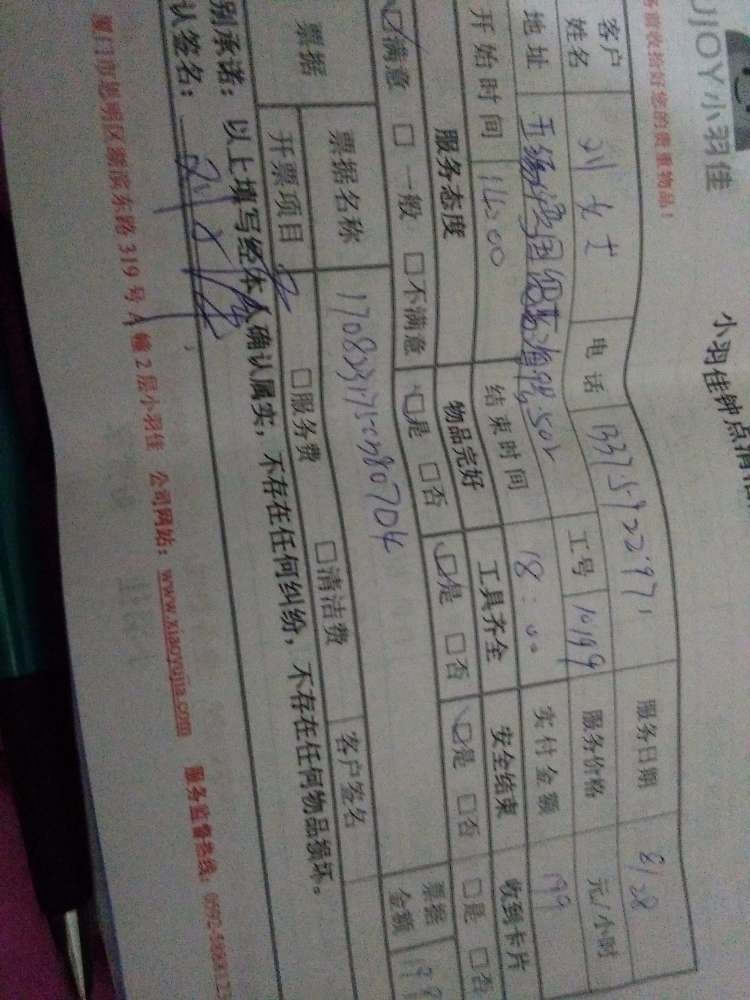 UJOY小羽佳
小羽佳钟点清洁
务前收拾好您的贵重物品！
客户姓名 刘女士 电话 服务日期 8/28
地址 工号 10199 服务价格 元/小时
开始时间 14:00 结束时间 18:00 实付金额 199
服务态度 物品完好 工具齐全 安全结束 收到卡片
☑满意 □一般 □不满意 ☑是 □否 ☑是 □否 ☑是 □否 □是 □否
票据 票据名称 票据金额
开票项目 □服务费 □清洁费 客户签名
别承诺：以上填写经本人确认属实，不存在任何纠纷，不存在任何物品损坏。
认签名：
厦门市思明区湖滨东路319号A幢2层小羽佳 公司网站：www.xiaoyujia.com 服务监督热线：